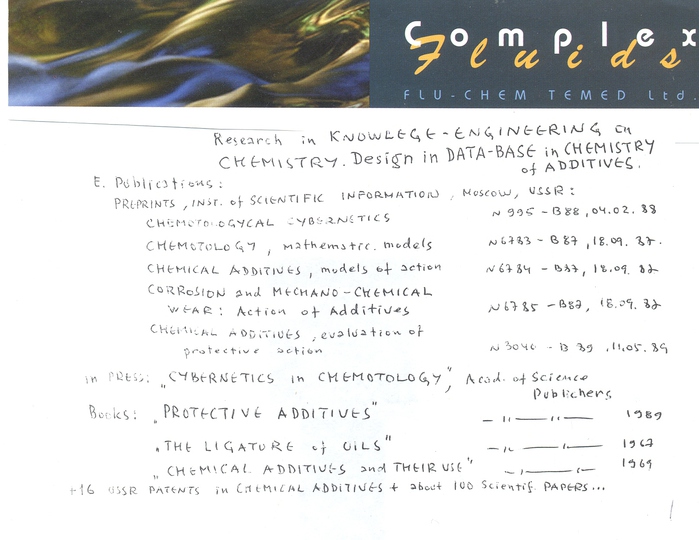 Complex
Fluids
FLU-CHEM TEMED Ltd.
Research in KNOWLEGE-ENGINEERING in
CHEMISTRY. Design in DATA-BASE in CHEMISTRY
of ADDITIVES.
E. Publications:
PREPRINTS, INST. of SCIENTIFIC INFORMATION, MOSCOW, USSR:
CHEMOTOLOGYCAL CYBERNETICS N 995-B88, 04.02.88
CHEMOTOLOGY, mathematic. models N6783-B87, 18.09.87.
CHEMICAL ADDITIVES, models of action N6784-B87, 18.09.87
CORROSION and MECHANO-CHEMICAL
WEAR: Action of Additives N6785-B87, 18.09.87
CHEMICAL ADDITIVES, evaluation of
protective action N3046-B 89, 11.05.89
in PRESS: „CYBERNETICS in CHEMOTOLOGY", Acad. of Science
Publichers
Books: „PROTECTIVE ADDITIVES" — " — " — 1989
„THE LIGATURE of OILS" — " — " — 1967
„CHEMICAL ADDITIVES and THEIR USE" — " — " — 1969
+16 USSR PATENTS in CHEMICAL ADDITIVES + about 100 Scientif. PAPERS...